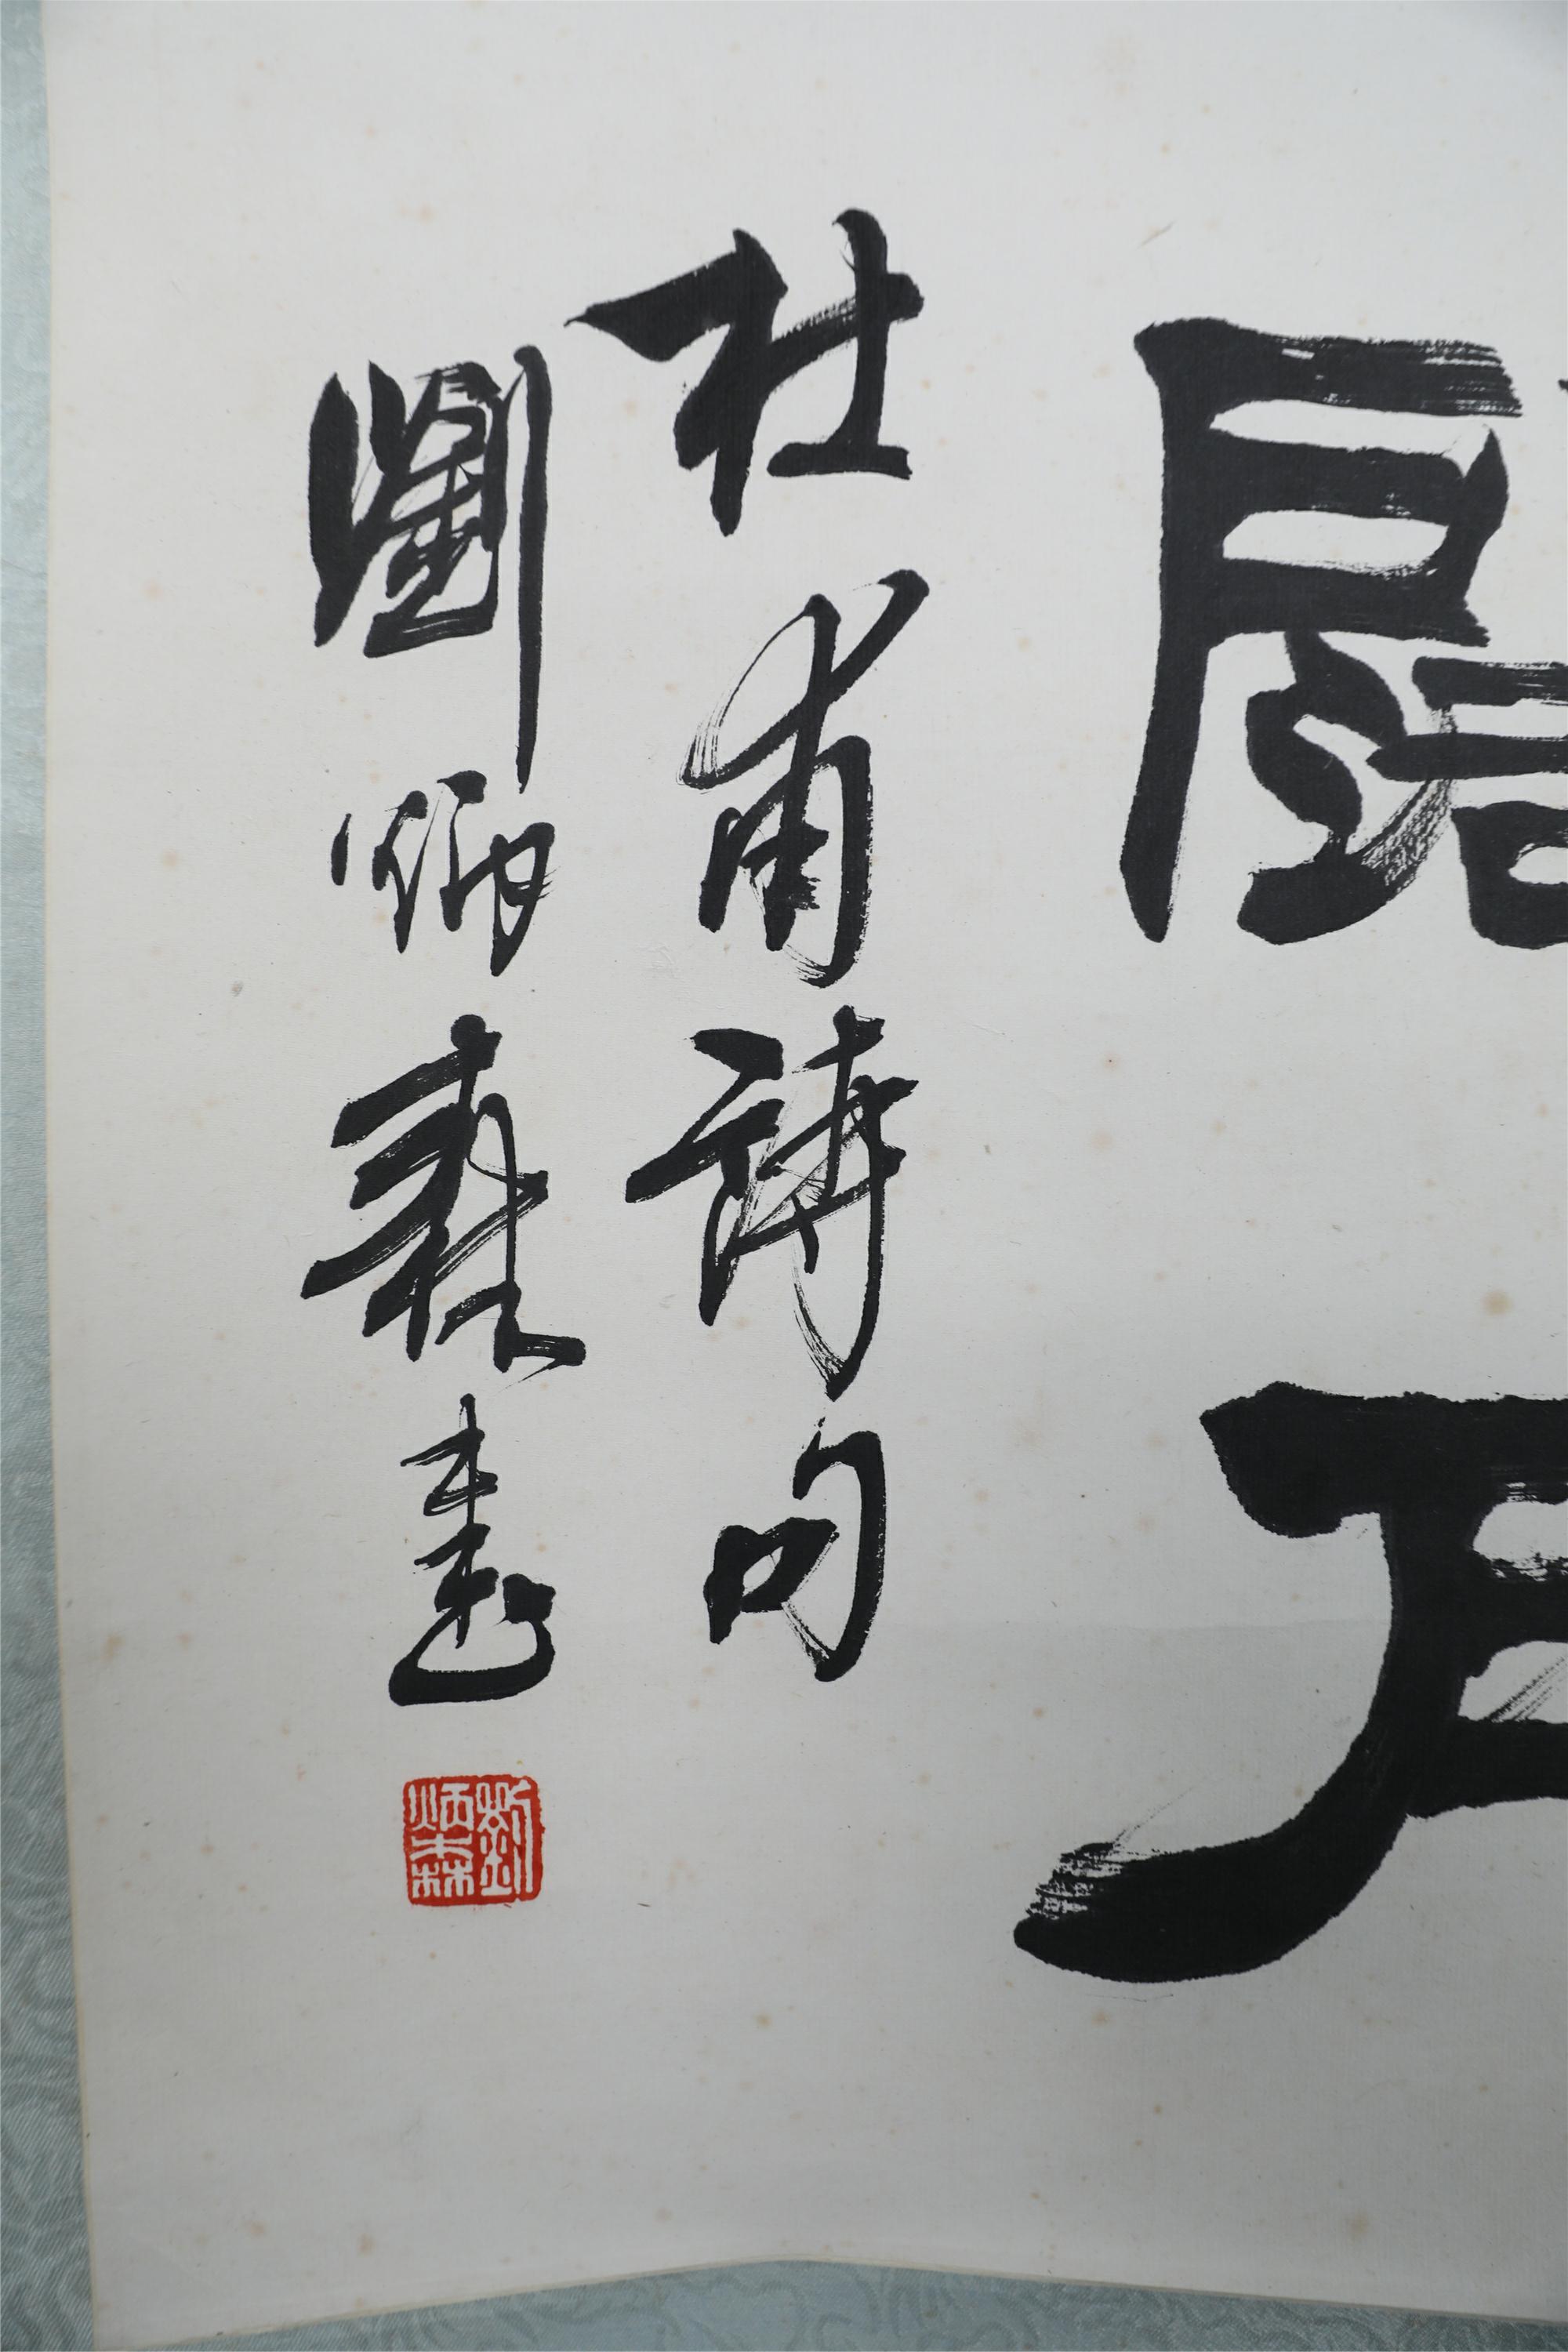 闊月
杜甫詩句
劉炳森書
劉炳森